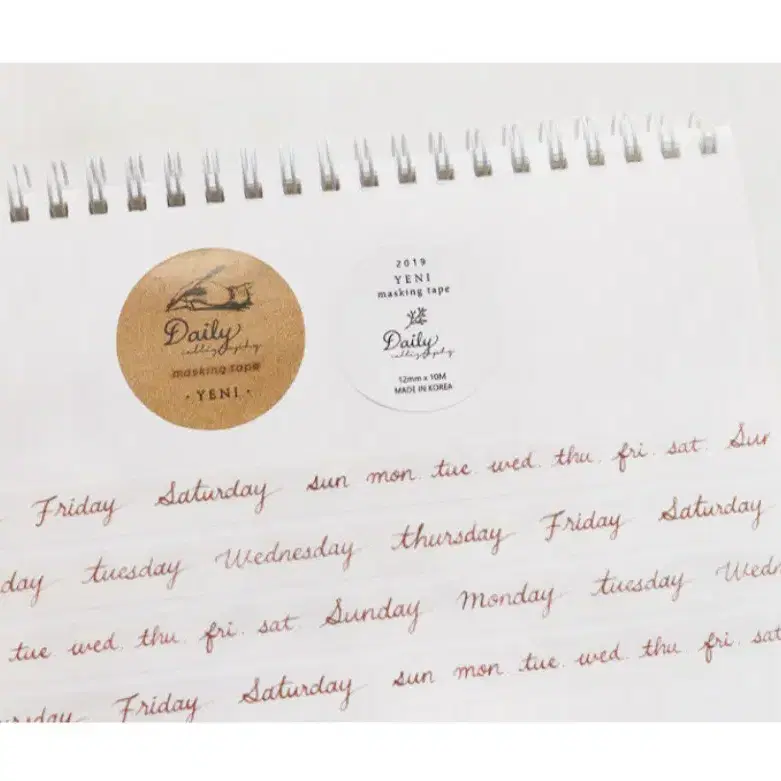 Daily
calligraphy
masking tape
· YENI ·
2019
YENI
masking tape
Daily
calligraphy
12mm x 10M
MADE IN KOREA
Friday Saturday sun mon. tue. wed. thu. fri. sat. Sun
day tuesday Wednesday thursday Friday Saturday
tue wed. thu. fri. sat. Sunday Monday tuesday Wedn
ursday Friday Saturday sun mon. tue. wed. thu. fri. sat